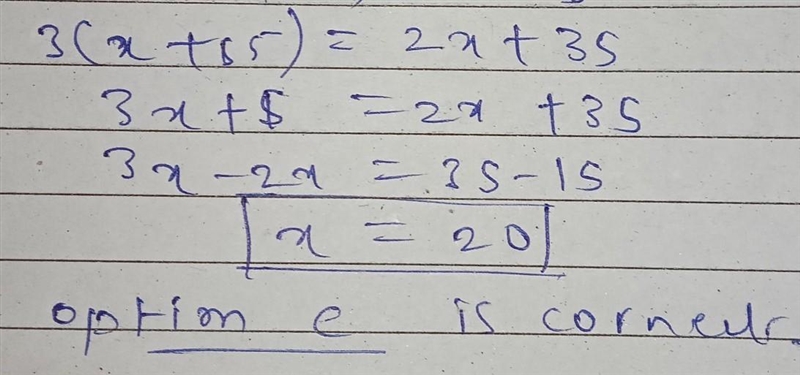 3(x + 5) = 2x + 35
3x + 5 = 2x + 35
3x - 2x = 35 - 15
x = 20
option c is